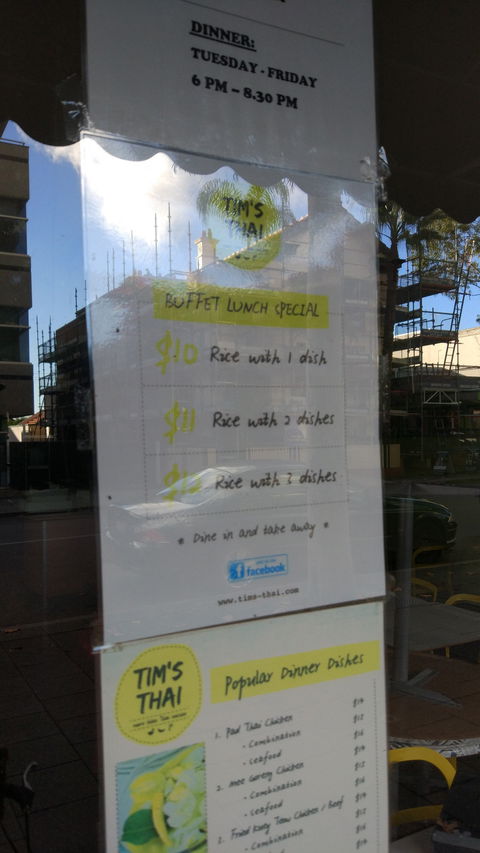 DINNER:
TUESDAY - FRIDAY
6 PM – 8.30 PM
TIM'S
THAI
BUFFET LUNCH SPECIAL
$10 Rice with 1 dish
$11 Rice with 2 dishes
$12 Rice with 3 dishes
* Dine in and take away *
facebook
www.tims-thai.com
TIM'S
THAI
Popular Dinner Dishes
1. Pad Thai Chicken
- Combination
- Seafood
2. Mee Goreng Chicken
- Combination
- Seafood
Chicken / Beef
- Combination